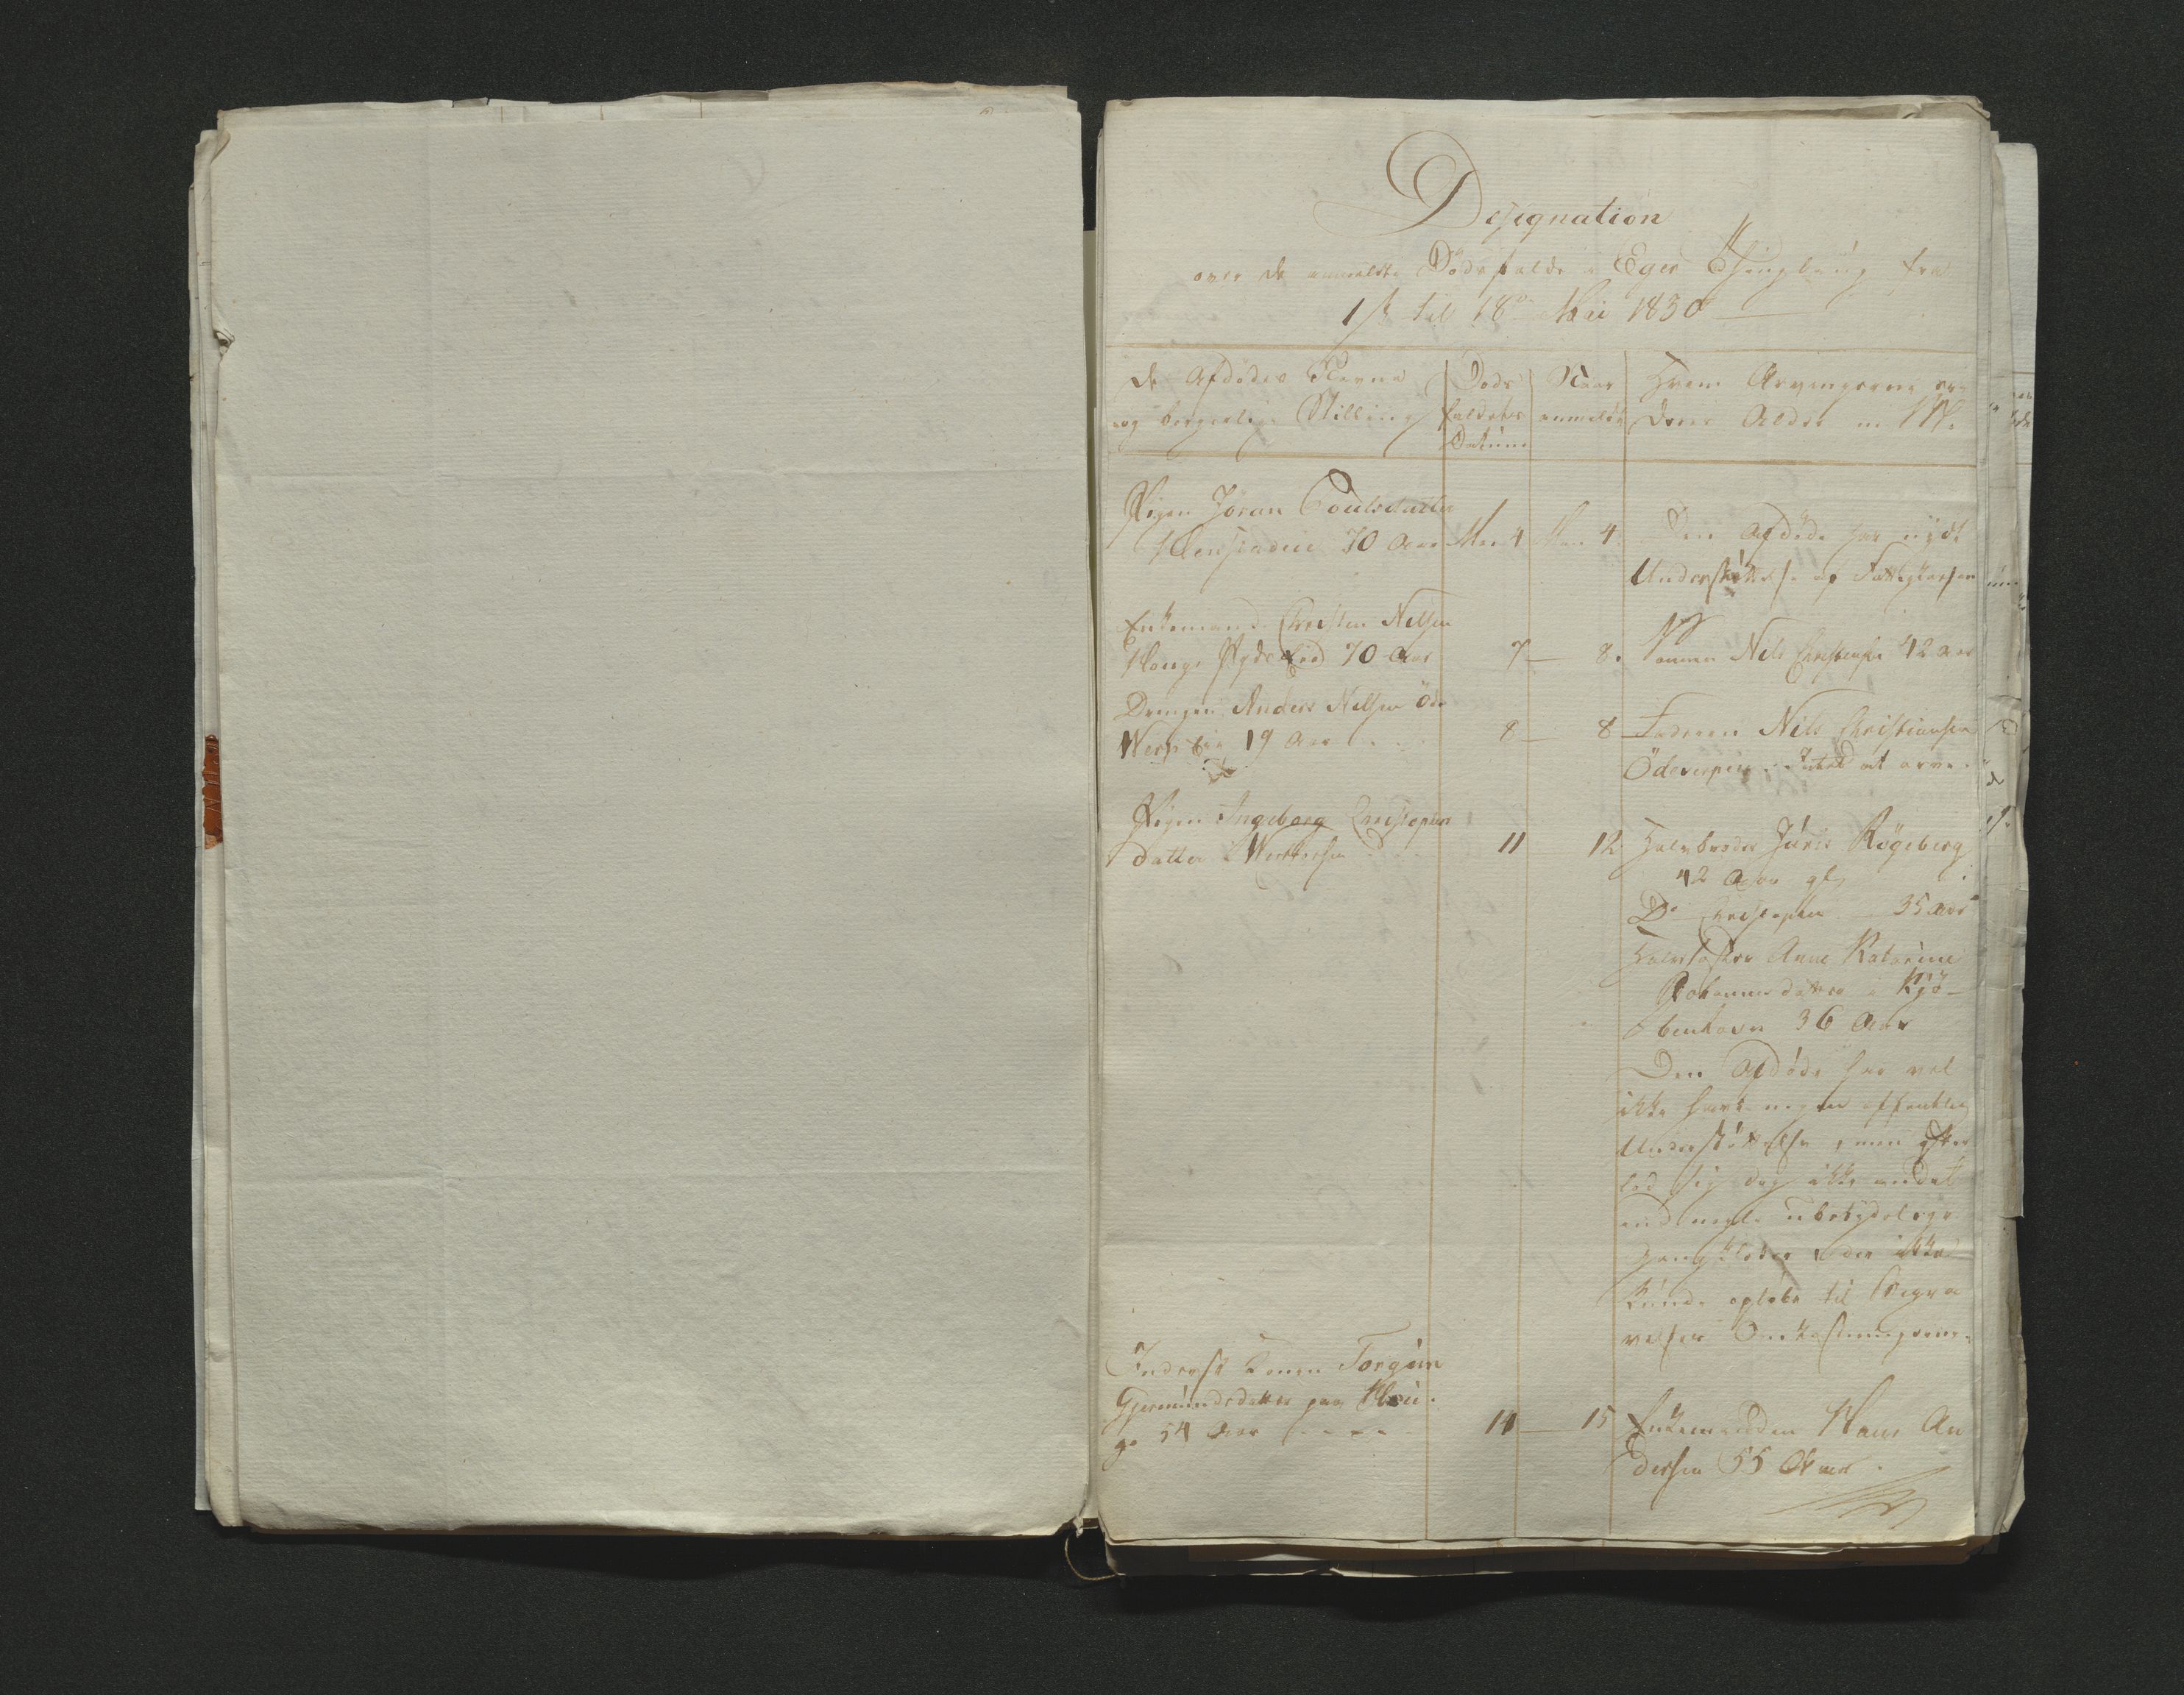 Designation
over de anmeldte Dødsfalde i Eger Thinglaug fra
1ste til 18de Mai 1830
De Afdødes Navne
og borgerlige Stilling
Døds
faldets
Datum
Naar
anmeldt
Hvem Arvingerne ere
deres Alder m. M.
Pigen Joran Poulsdatter
70 Aar Mai 4 Mai 4.
Den Afdøde har nydt
Understøttelse af Fattigkassen
Enkemand Christen Nilsen
70 Aar 7 — 8.
Sønnen Nils Christensen 42 Aar
Drengen Anders Nilsen Øde
Werpin 19 Aar 8 — 8
Faderen Nils Christiansen
Ödeverpin. Intet at arve.
Pigen Ingeborg Christopher
datter 11 12
Halvbroder Júris Rögeberg
42 Aar gl.
Do Christopher 35 Aar
Halvsøster Anne Katarine
Johannesdatter i Kjö-
benhavn 36 Aar
Den Afdøde har vel
ikke havt nogen offentlig
Understøttelse, men efter
lod sig dog ikke andet
end nogle ubetydelige
Gangklæder, der ikke
kunde opløbe til Begra
velses Omkostningerne.
Inderst Konen Torgún
Gjermúndsdatter paa
ge 54 Aar 14 — 15
Enkemanden Hans An
dersen 55 Aar.